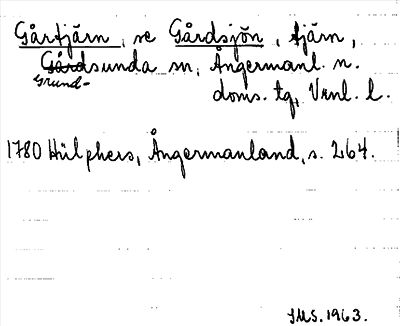 Gårtjärn, se Gårdsjön, tjärn,
Gårdsunda sn, Ångermanl. n.
Grund-
doms. tg, Vrnl. l.
1780 Hülphers, Ångermanland, s. 264.
JMS. 1963.